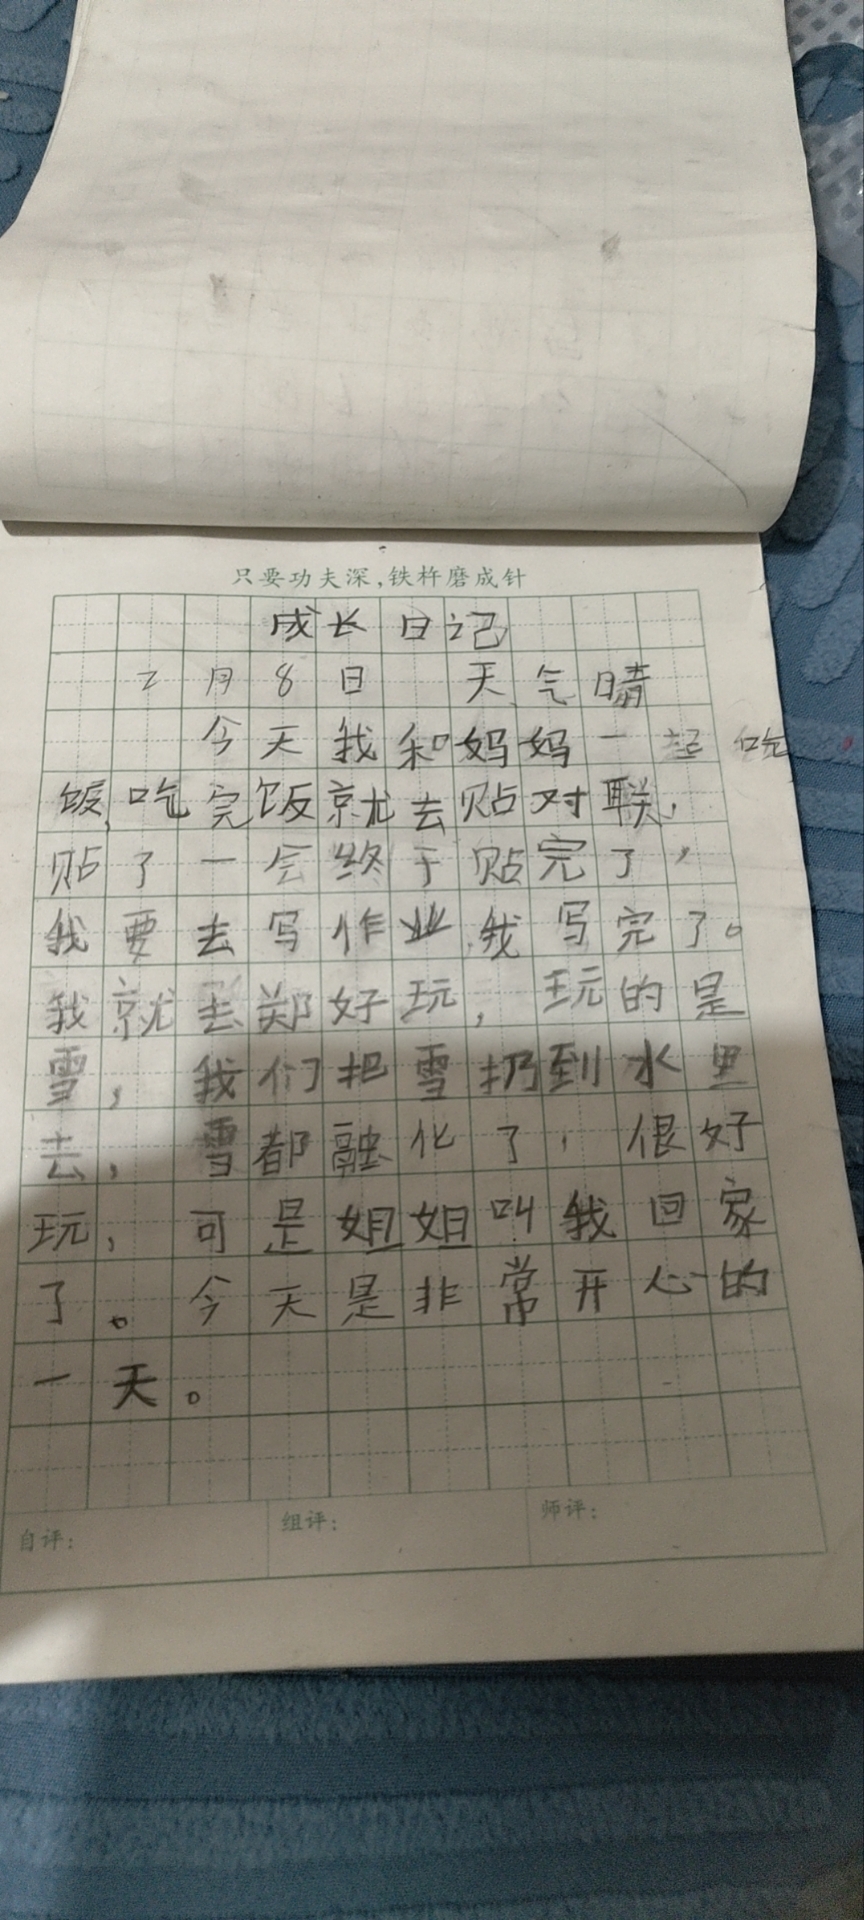 只要功夫深,铁杵磨成针
成长日记
2月8日 天气晴
今天我和妈妈一起吃
饭,吃完饭就去贴对联,
贴了一会终于贴完了,
我要去写作业,我写完了。
我就去郑好玩,玩的是
雪,我们把雪扔到水里
去,雪都融化了,很好
玩,可是姐姐叫我回家
了。今天是非常开心的
一天。
自评: 组评: 师评: